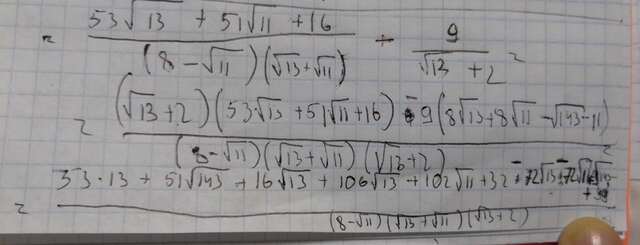 = (53√13 + 51√11 + 16) / ((8 - √11)(√13 + √11)) - 9 / (√13 + 2) =
= ((√13 + 2)(53√13 + 51√11 + 16) - 9(8√13 + 8√11 - √143 - 11)) / ((8 - √11)(√13 + √11)(√13 + 2)) =
= (53·13 + 51√143 + 16√13 + 106√13 + 102√11 + 32 - 72√13 - 72√11) / ((8 - √11)(√13 + √11)(√13 + 2))